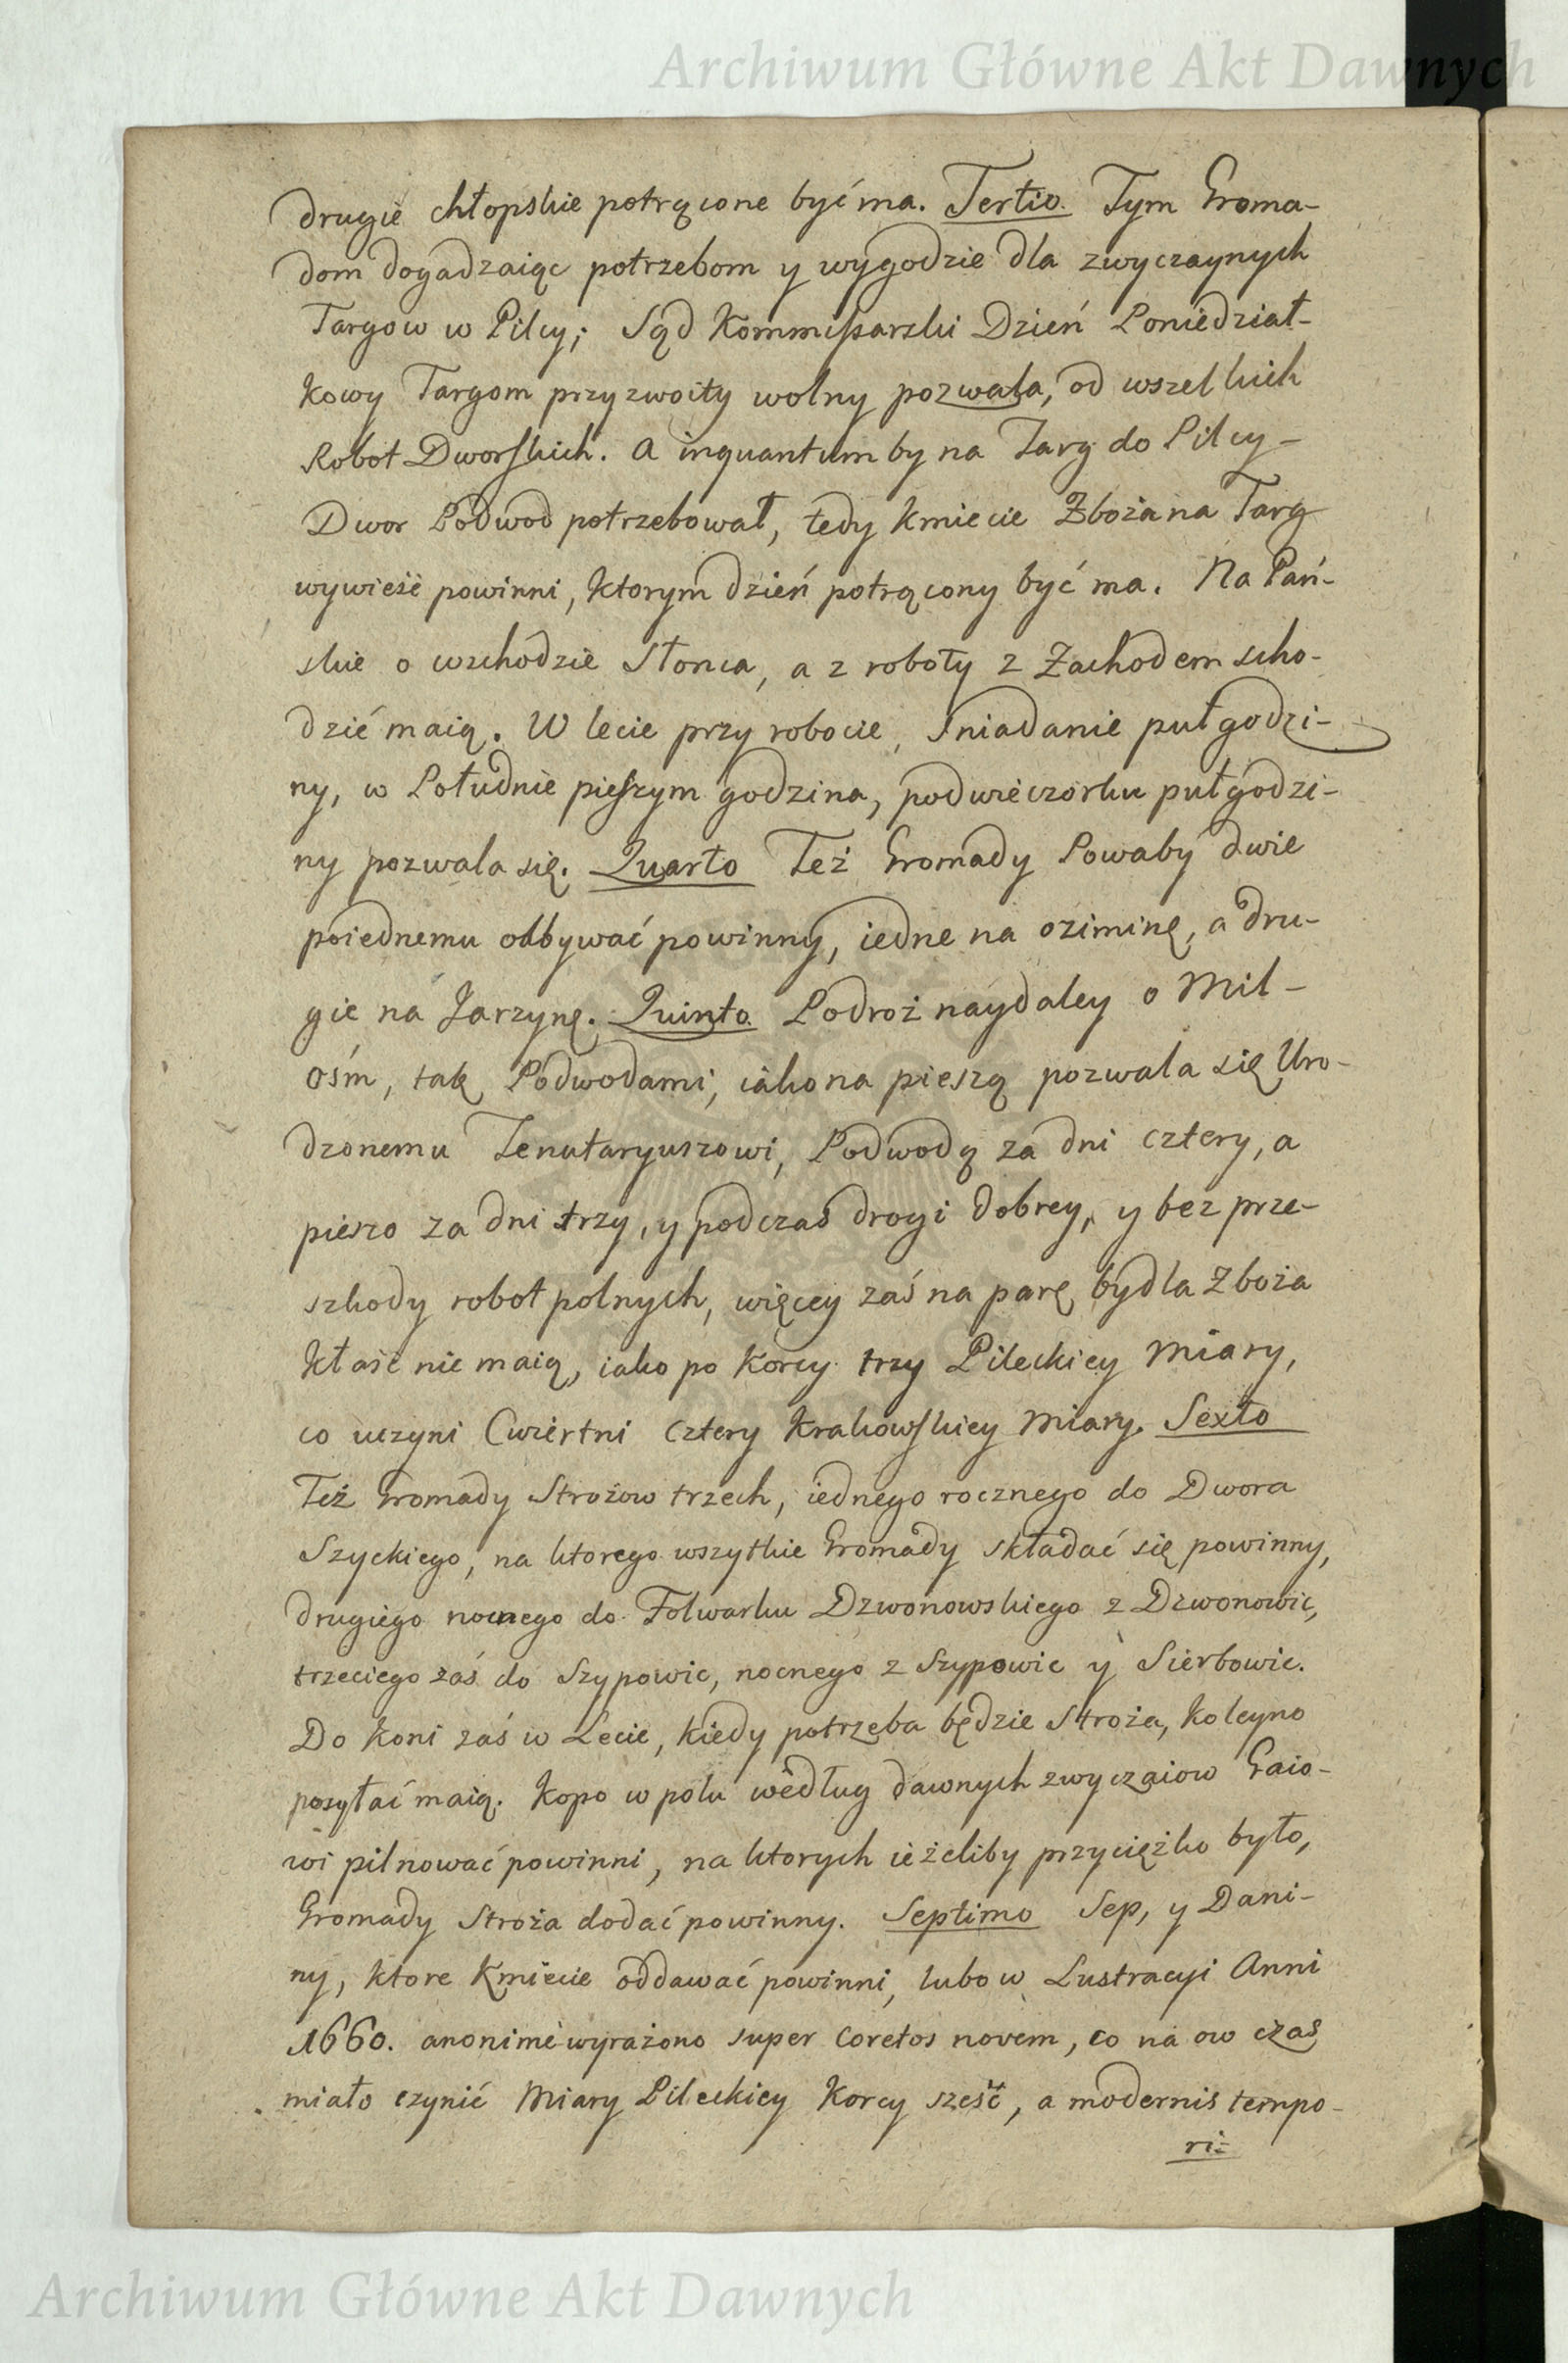 Archiwum Główne Akt Dawnych
drugie chłopskie potrącone być ma. Tertio. Tym Groma-
dom dogadzaiąc potrzebom y wygodzie dla zwyczaynych
Targow w Pilcy; Sąd Kommissarski Dzień Poniedział-
kowy Targom przyzwoity wolny pozwala, od wszelkich
Robot Dworskich. A inquantum by na Targ do Pilcy-
Dwor Podwod potrzebował, tedy Kmiecie Zboża na Targ
wywieść powinni, Ktorym dzień potrącony być ma. Na Pań-
skie o wschodzie Słonca, a z roboty z Zachodem scho-
dzić maią. W lecie przy robocie, Sniadanie puł godzi-
ny, w Południe pieszym godzina, podwieczorku puł godzi-
ny pozwala się. Quarto Też Gromady Powaby dwie
poiednemu odbywać powinny, iedne na oziminę, a dru-
gie na Jarzynę. Quinto. Podroż naydaley o Mil-
ośm, tak Podwodami, iako na pieszą pozwala się Uro-
dzonemu Tenutaryuszowi, Podwodą za dni cztery, a
pieszo za dni trzy, y podczas drogi dobrey, y bez prze-
szkody robot polnych, więcey zaś na parę bydla Zboża
Kłaść nie maią, iako po Korcy trzy Pileckiey Miary,
co uczyni Cwiertni cztery Krakowskiey Miary. Sexto
Też Gromady Strożow trzech, iednego rocznego do Dwora
Szyckiego, na ktorego wszytkie Gromady składać się powinny,
drugiego nocnego do Folwarku Dzwonowskiego z Dzwonowic,
trzeciego zaś do Szypowic, nocnego z Szypowic y Sierbowic.
Do Koni zaś w Lecie, kiedy potrzeba będzie Stroża, Koleyno
posyłać maią. Kopo w polu według dawnych zwyczaiow Gaio-
wi pilnować powinni, na ktorych ieżeliby przyciężko było,
Gromady Stroża dodać powinny. Septimo Sep, y Dani-
ny, ktore Kmiecie oddawać powinni, lubo w Lustracyi Anni
1660. anonime wyrażono super coretos novem, co na ow czas
miało czynić Miary Pileckiey Korcy sześć, a modernis tempo-
ri=
Archiwum Główne Akt Dawnych